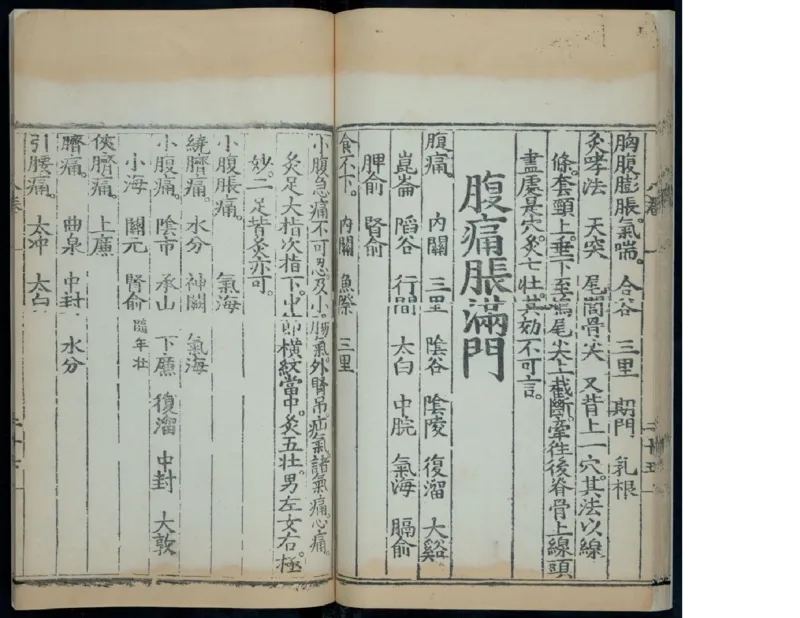 胸腹膨脹。氣喘。 合谷 三里 期門 乳根
灸哮法 天突 尾閭骨尖 又背上一穴。其法以線
一條。套頸上垂下。至鳩尾尖上截斷。牽往後脊骨上線頭
盡處是穴。灸七壯。其効不可言。
腹痛脹滿門
腹痛。 內關 三里 陰谷 陰陵 復溜 大谿
崑崙 陷谷 行間 太白 中脘 氣海 膈俞
脾俞 腎俞
食不下。 內關 魚際 三里
小腹急痛不可忍。及小腸氣。外腎吊。疝氣諸氣痛。心痛。
灸足大指次指下。中節橫紋當中。灸五壯。男左女右。極
妙。二足皆灸亦可。
小腹脹痛。 氣海
繞臍痛。 水分 神闕 氣海
小腹痛。 陰市 承山 下廉 復溜 中封 大敦
小海 關元 腎俞 隨年壯
俠臍痛。 上廉
臍痛。 曲泉 中封 水分
引腰痛。 太冲 太白